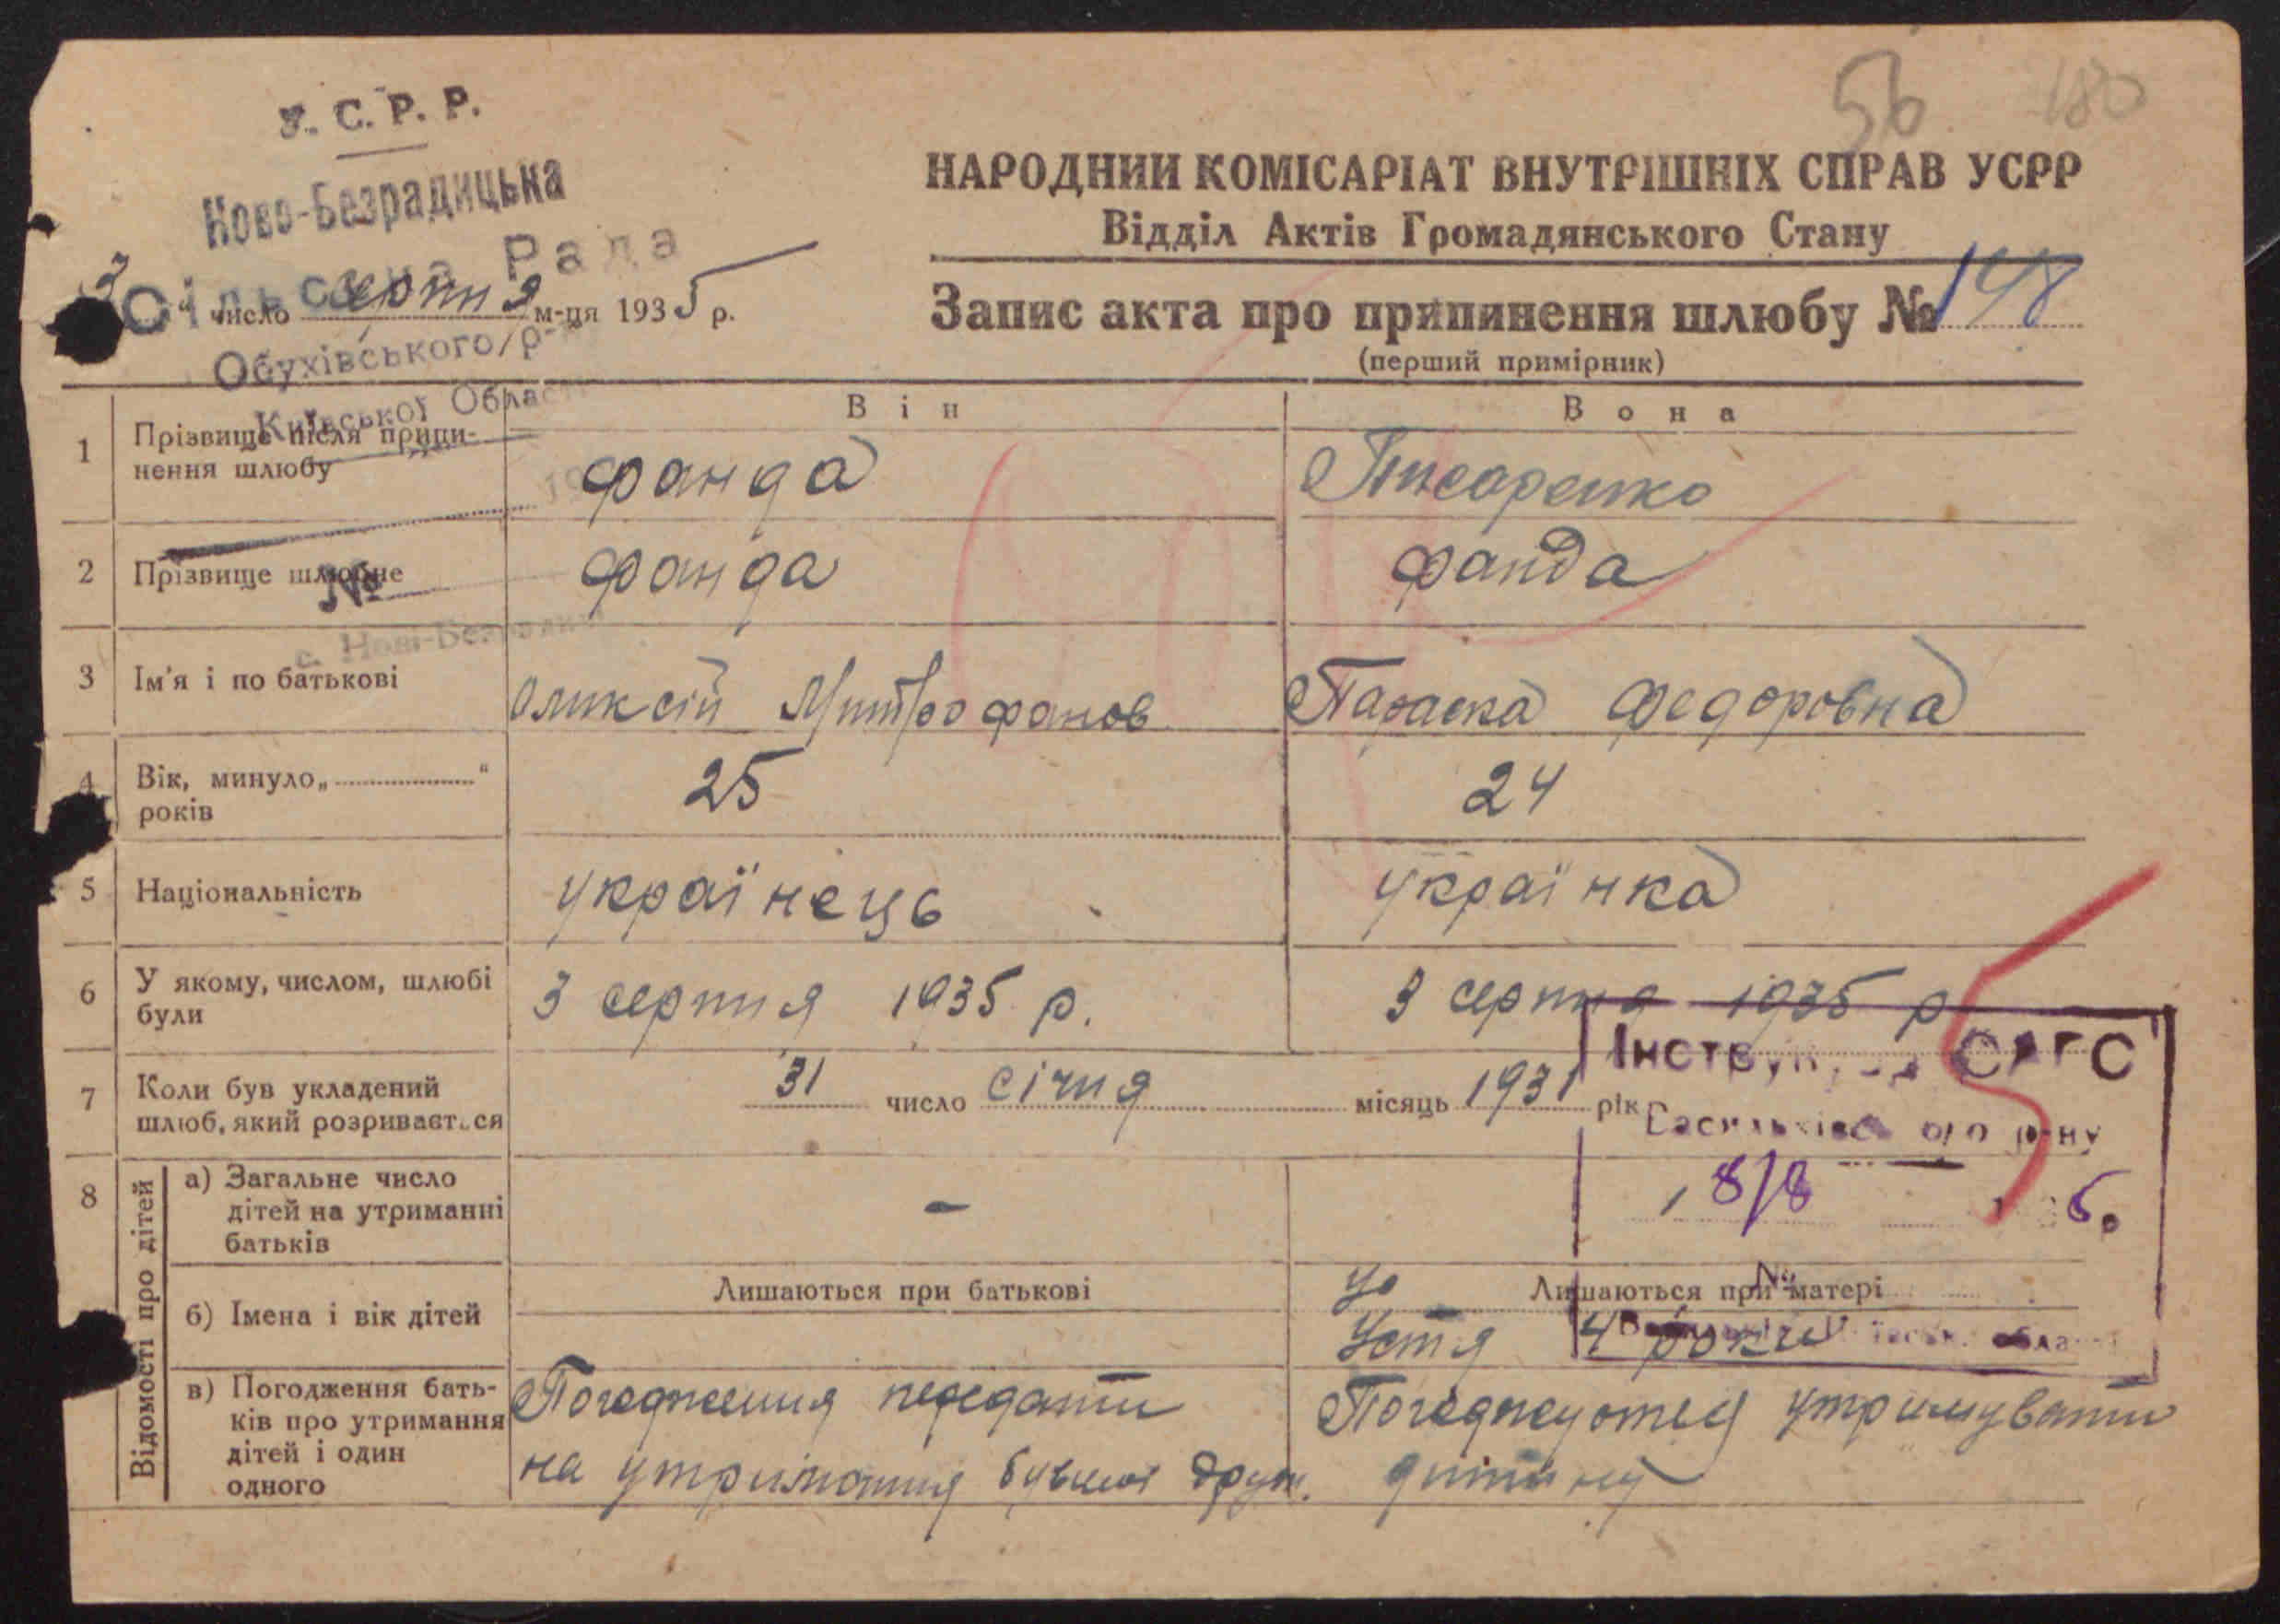 56 180
У. С. Р. Р.
Ново-Безрадицька
Сільська Рада
Обухівського р-
Київської Област
№
с. Нові-Безрадичі
НАРОДНИЙ КОМІСАРІАТ ВНУТРІШНІХ СПРАВ УСРР
Відділ Актів Громадянського Стану
3 " число серпня м-ця 1935 р.
Запис акта про припинення шлюбу № 148
(перший примірник)
Він Вона
1 Прізвище після припи-
нення шлюбу
Фанда Писаренко
2 Прізвище шлюбне Фанда Фанда
3 Ім'я і по батькові Оликсій Митрофанов Параска Федоровна
4 Вік, минуло „ “
років
25 24
5 Національність українець українка
6 У якому, числом, шлюбі
були
3 серпня 1935 р. 3 серпня 1935 р
7 Коли був укладений
шлюб, який розривається
31 число січня місяць 1931 рік
Інструктор САГС
Васильківського р-ну
8/8
8 Відомості про дітей
а) Загальне число
дітей на утриманні
батьків
—
б) Імена і вік дітей
Лишаються при батькові Лишаються при матері
Устя 4 роки
в) Погодження бать-
ків про утримання
дітей і один
одного
Погодження передати
на утримання бувшої друж.
Погоджуются утримувати
дитину